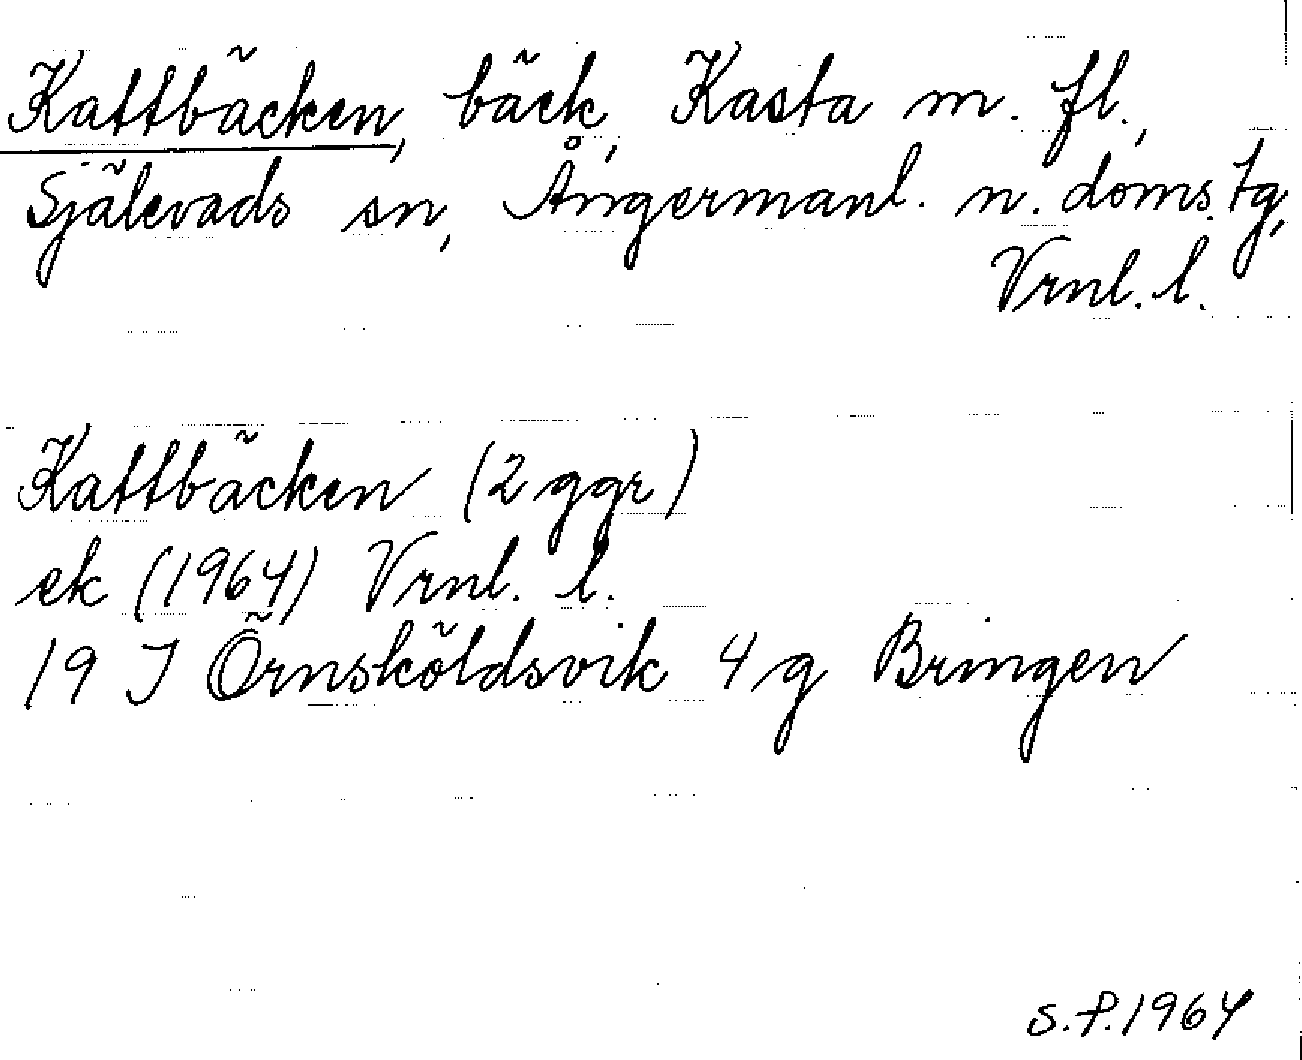 Kattbäcken, bäck, Kasta m. fl.,
Själevads sn, Ångermanl. n. doms.tg,
Vrnl. l.
Kattbäcken (2 ggr)
ek (1964) Vrnl. l.
19 J Örnsköldsvik 4 g Bringen
s.f.1964